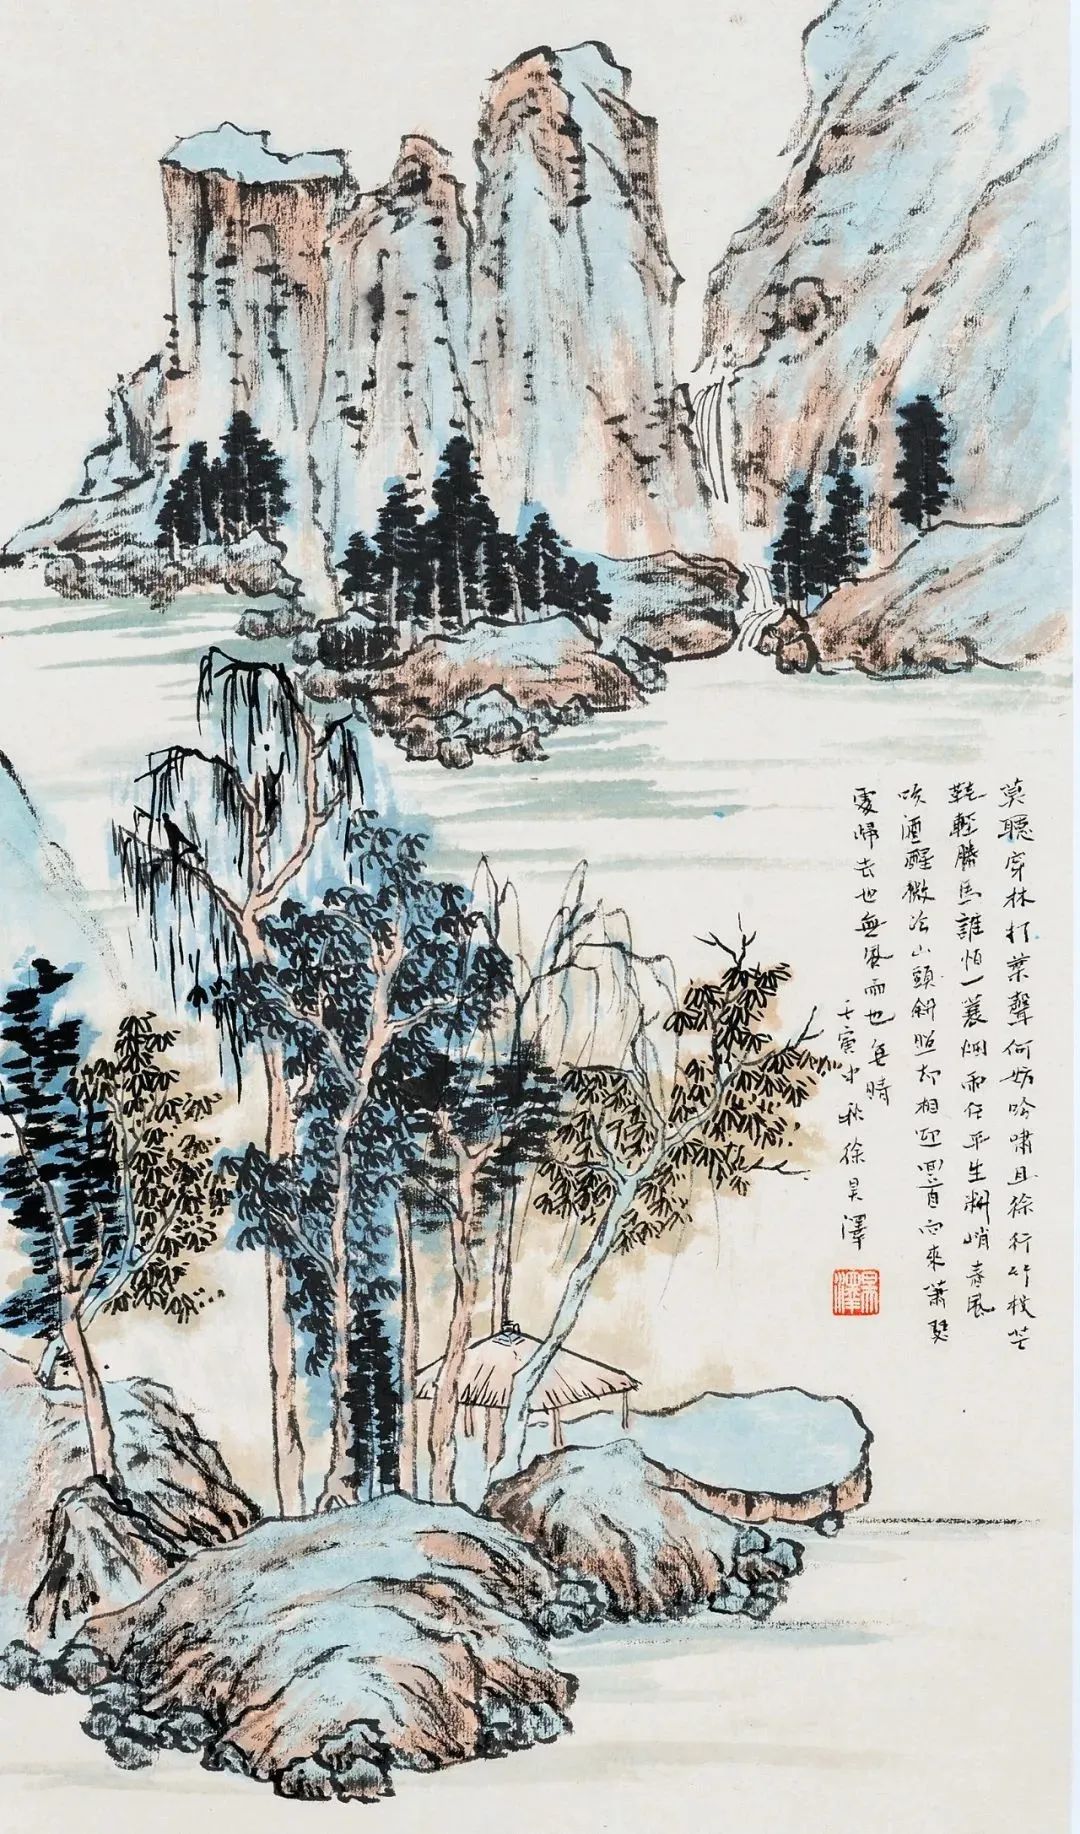 莫聽穿林打葉聲何妨吟嘯且徐行竹杖芒
鞋輕勝馬誰怕一蓑烟雨任平生料峭春風
吹酒醒微冷山頭斜照却相迎回首向來蕭瑟
處歸去也無風雨也無時
壬寅中秋徐昊澤
昊澤